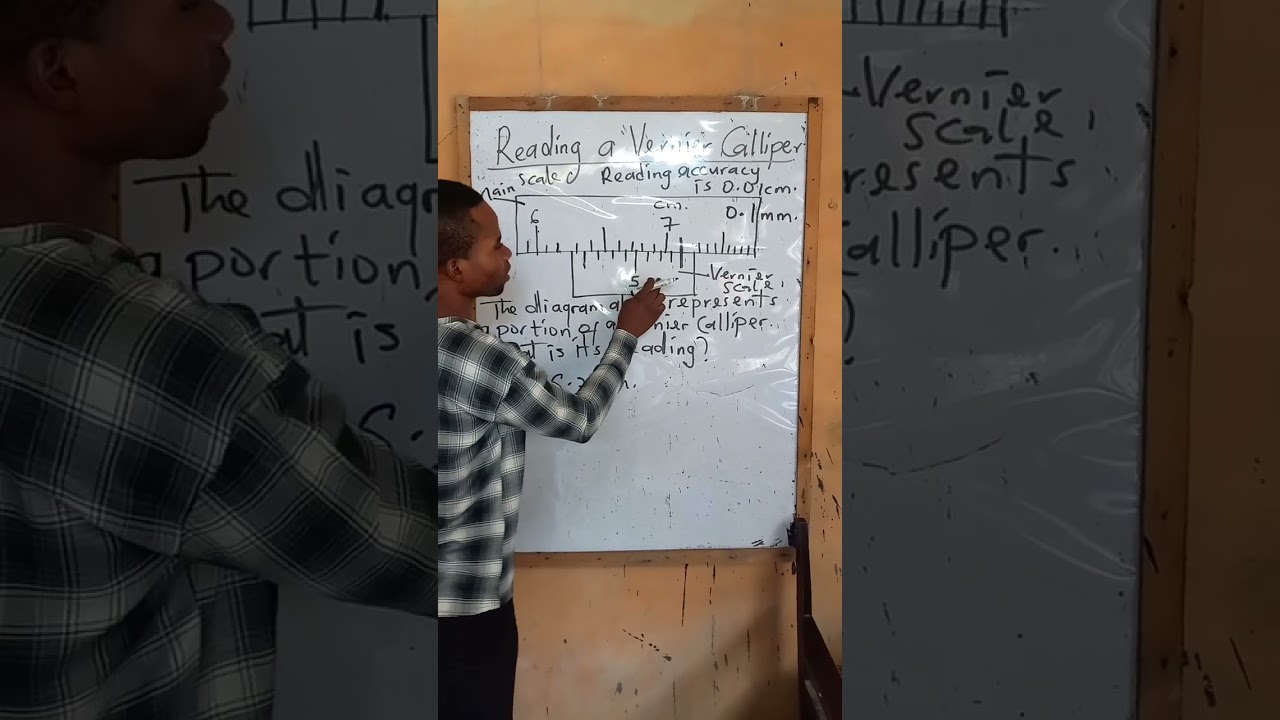 Reading a Vernier Calliper
Main scale Reading accuracy
is 0.01cm.
cm. 0.1mm.
6 7
5
Vernier
scale,
The diagram represents
a portion of a Calliper.
is it's reading?